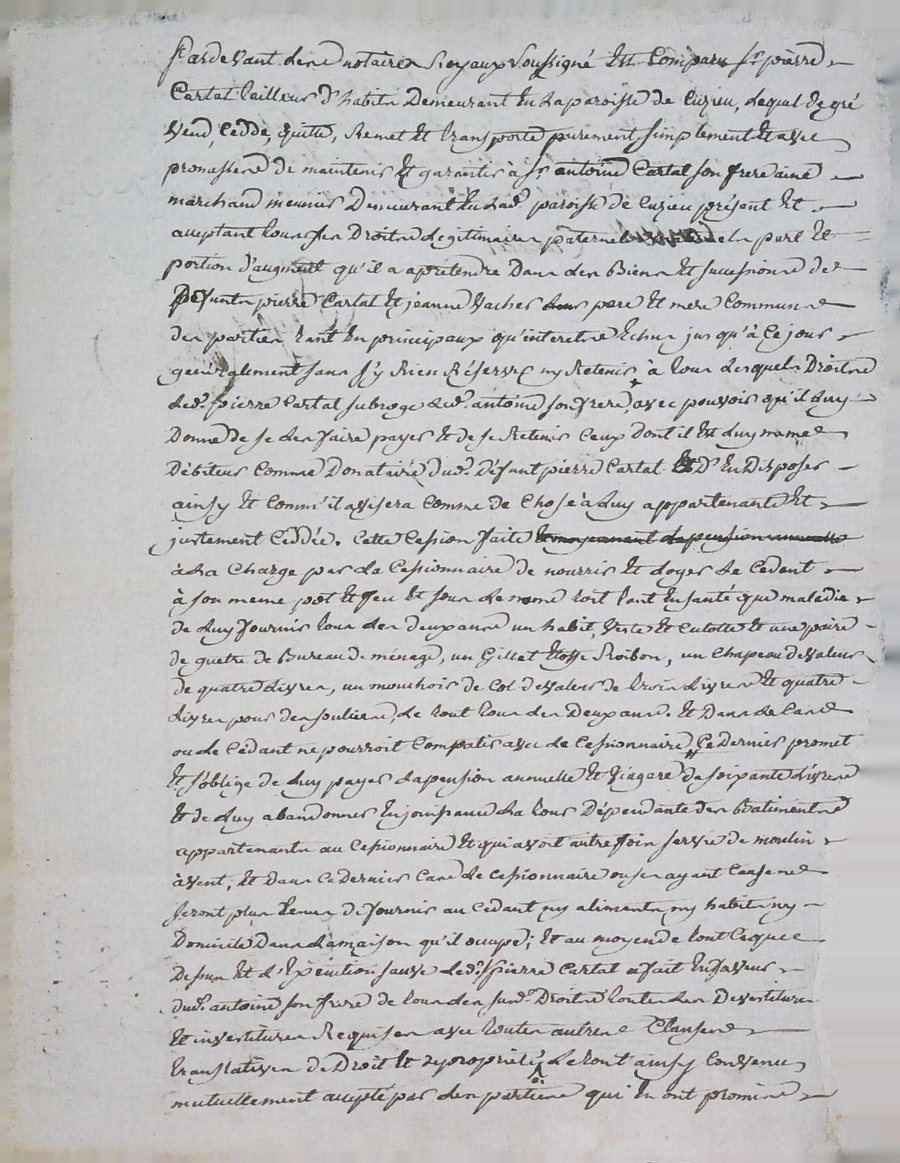 Pardevant les notaires Royaux Soussigné Est Comparu sr. pierre
Cartal tailleur d'habits Demeurant En la paroisse de Cuzieu, Lequel de gré
vend, Cedde, quitte, Remet Et transporte purement simplement Et avec
promesses de maintenir Et garantir à sr. antoine Cartal son frere ainé
marchand meunier Demeurant En lad. paroisse de Cuzieu présent Et
acceptant tous ses Droits Legitimaires paternels part Et
portion d'augment qu'il a apretendre Dans les Biens Et successions de
Defunts pierre Cartal Et jeanne vacher pere Et mere Communs
des parties tant En principaux qu'interets Echus jusqu'à Ce jour
generalement sans s'y Rien Réserver ny Retenir à tous lesquels Droits
led. pierre Cartal subroge led. antoine son frere, avec pouvoir qu'il luy
Donne de se les faire payer Et de se Retenir Ceux Dont il Est luy meme
Débiteur Comme Donataire dud. Défunt pierre Cartal Et D'En Disposer
ainsy Et Comm'il avisera Comme de Chose à luy appartenante Et
justement Ceddée. Cette Cession faite Et moyennant la pension annuelle
à la Charge par la Cessionnaire de nourrir Et loger le Cedent
à son meme pot Et feu Et sous le meme toit tant En santé que maladie
de luy fournir tous les deux ans un habit, veste Et Culotte Et une paire
de guetre de Bureau de ménage, un Gillet Etoffe Roibon, un Chapeau de valeur
de quatre Livres, un mouchoir de Col de valeur de trois Livres Et quatre
Livres pour des souliers, le tout tous les Deux ans. Et Dans le Cas
ou le Cédant ne pourroit Compatir avec le Cessionnaire, Ce Dernier promet
Et s'oblige de luy payer la pension annuelle Et viagere de soixante Livres
Et de luy abandonner En jouissance la tour Dépendante des Batiments
appartenants au Cessionnaire Et qui avoit autrefois servie de moulin
à vent, Et Dans Ce Dernier Cas le Cessionnaire ou ses ayant Causes ne
seront plus tenus de fournir au Cédant ny aliments ny habits ny
Domicile Dans la maison qu'il occupe; Et au moyen de tout Ce que
Dessus Et L'Exécution sauve led. sr pierre Cartal a fait En faveur
dud. antoine son frere de tous les susd. Droits toutes les Devestitures
Et investitures Requises avec toutes autres Clauses
translatives de Droit Et de propriété, Le tout ainsy Convenu
mutuellement accepté par les parties qui En ont promis